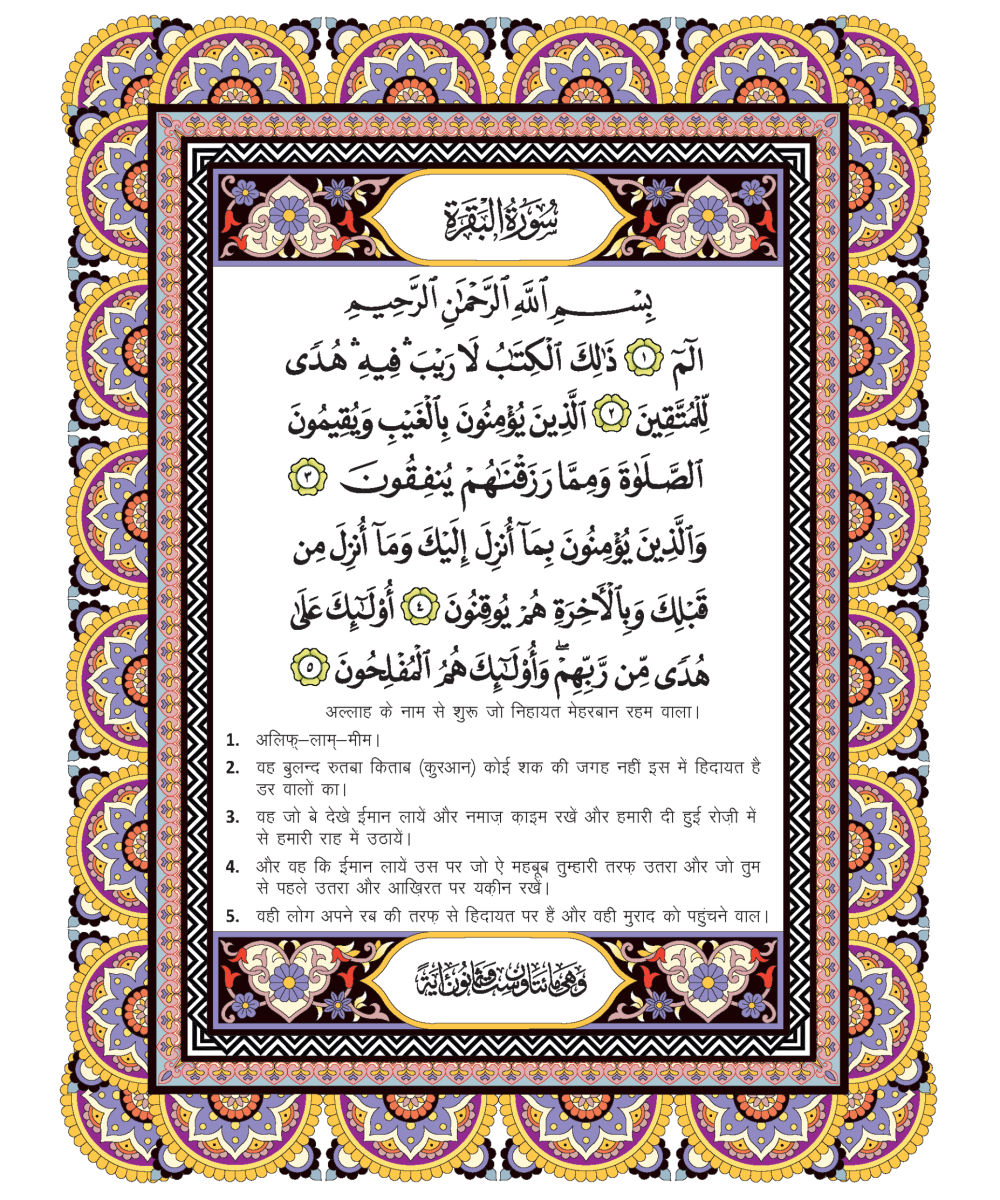 سُورَةُ الْبَقَرَةِ
بِسْمِ ٱللَّهِ ٱلرَّحْمَٰنِ ٱلرَّحِيمِ
الٓمٓ ١ ذَٰلِكَ ٱلْكِتَٰبُ لَا رَيْبَ ۛ فِيهِ ۛ هُدًى
لِّلْمُتَّقِينَ ٢ ٱلَّذِينَ يُؤْمِنُونَ بِٱلْغَيْبِ وَيُقِيمُونَ
ٱلصَّلَوٰةَ وَمِمَّا رَزَقْنَٰهُمْ يُنفِقُونَ ٣
وَٱلَّذِينَ يُؤْمِنُونَ بِمَآ أُنزِلَ إِلَيْكَ وَمَآ أُنزِلَ مِن
قَبْلِكَ وَبِٱلْأَخِرَةِ هُمْ يُوقِنُونَ ٤ أُو۟لَٰٓئِكَ عَلَىٰ
هُدًى مِّن رَّبِّهِمْ ۖ وَأُو۟لَٰٓئِكَ هُمُ ٱلْمُفْلِحُونَ ٥
अल्लाह के नाम से शुरू जो निहायत मेहरबान रहम वाला।
1. अलिफ़्–लाम्–मीम।
2. वह बुलन्द रुतबा किताब (कुरआन) कोई शक की जगह नहीं इस में हिदायत है
डर वालों का।
3. वह जो बे देखे ईमान लायें और नमाज़ क़ाइम रखें और हमारी दी हुई रोज़ी में
से हमारी राह में उठायें।
4. और वह कि ईमान लायें उस पर जो ऐ महबूब तुम्हारी तरफ़ उतरा और जो तुम
से पहले उतरा और आख़िरत पर यक़ीन रखें।
5. वही लोग अपने रब की तरफ़ से हिदायत पर हैं और वही मुराद को पहुंचने वाल।
وَهِيَ مِائَتَانِ وَسِتٌّ وَثَمَانُونَ اٰيَةً